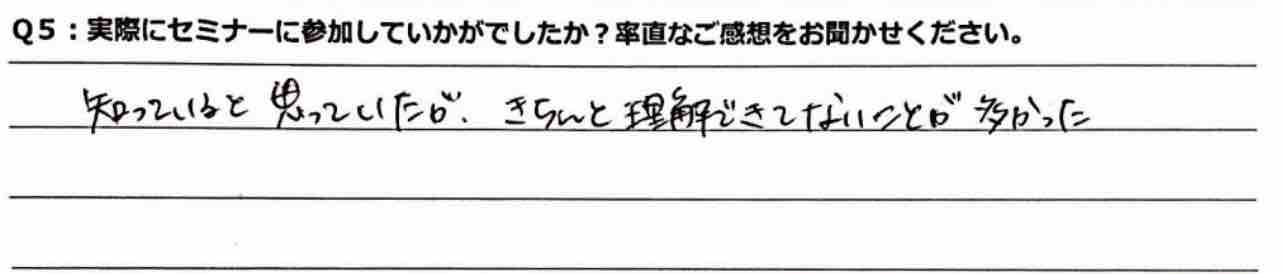 Q5：実際にセミナーに参加していかがでしたか？率直なご感想をお聞かせください。
知っていると思っていたが、きちんと理解できてないことが多かった